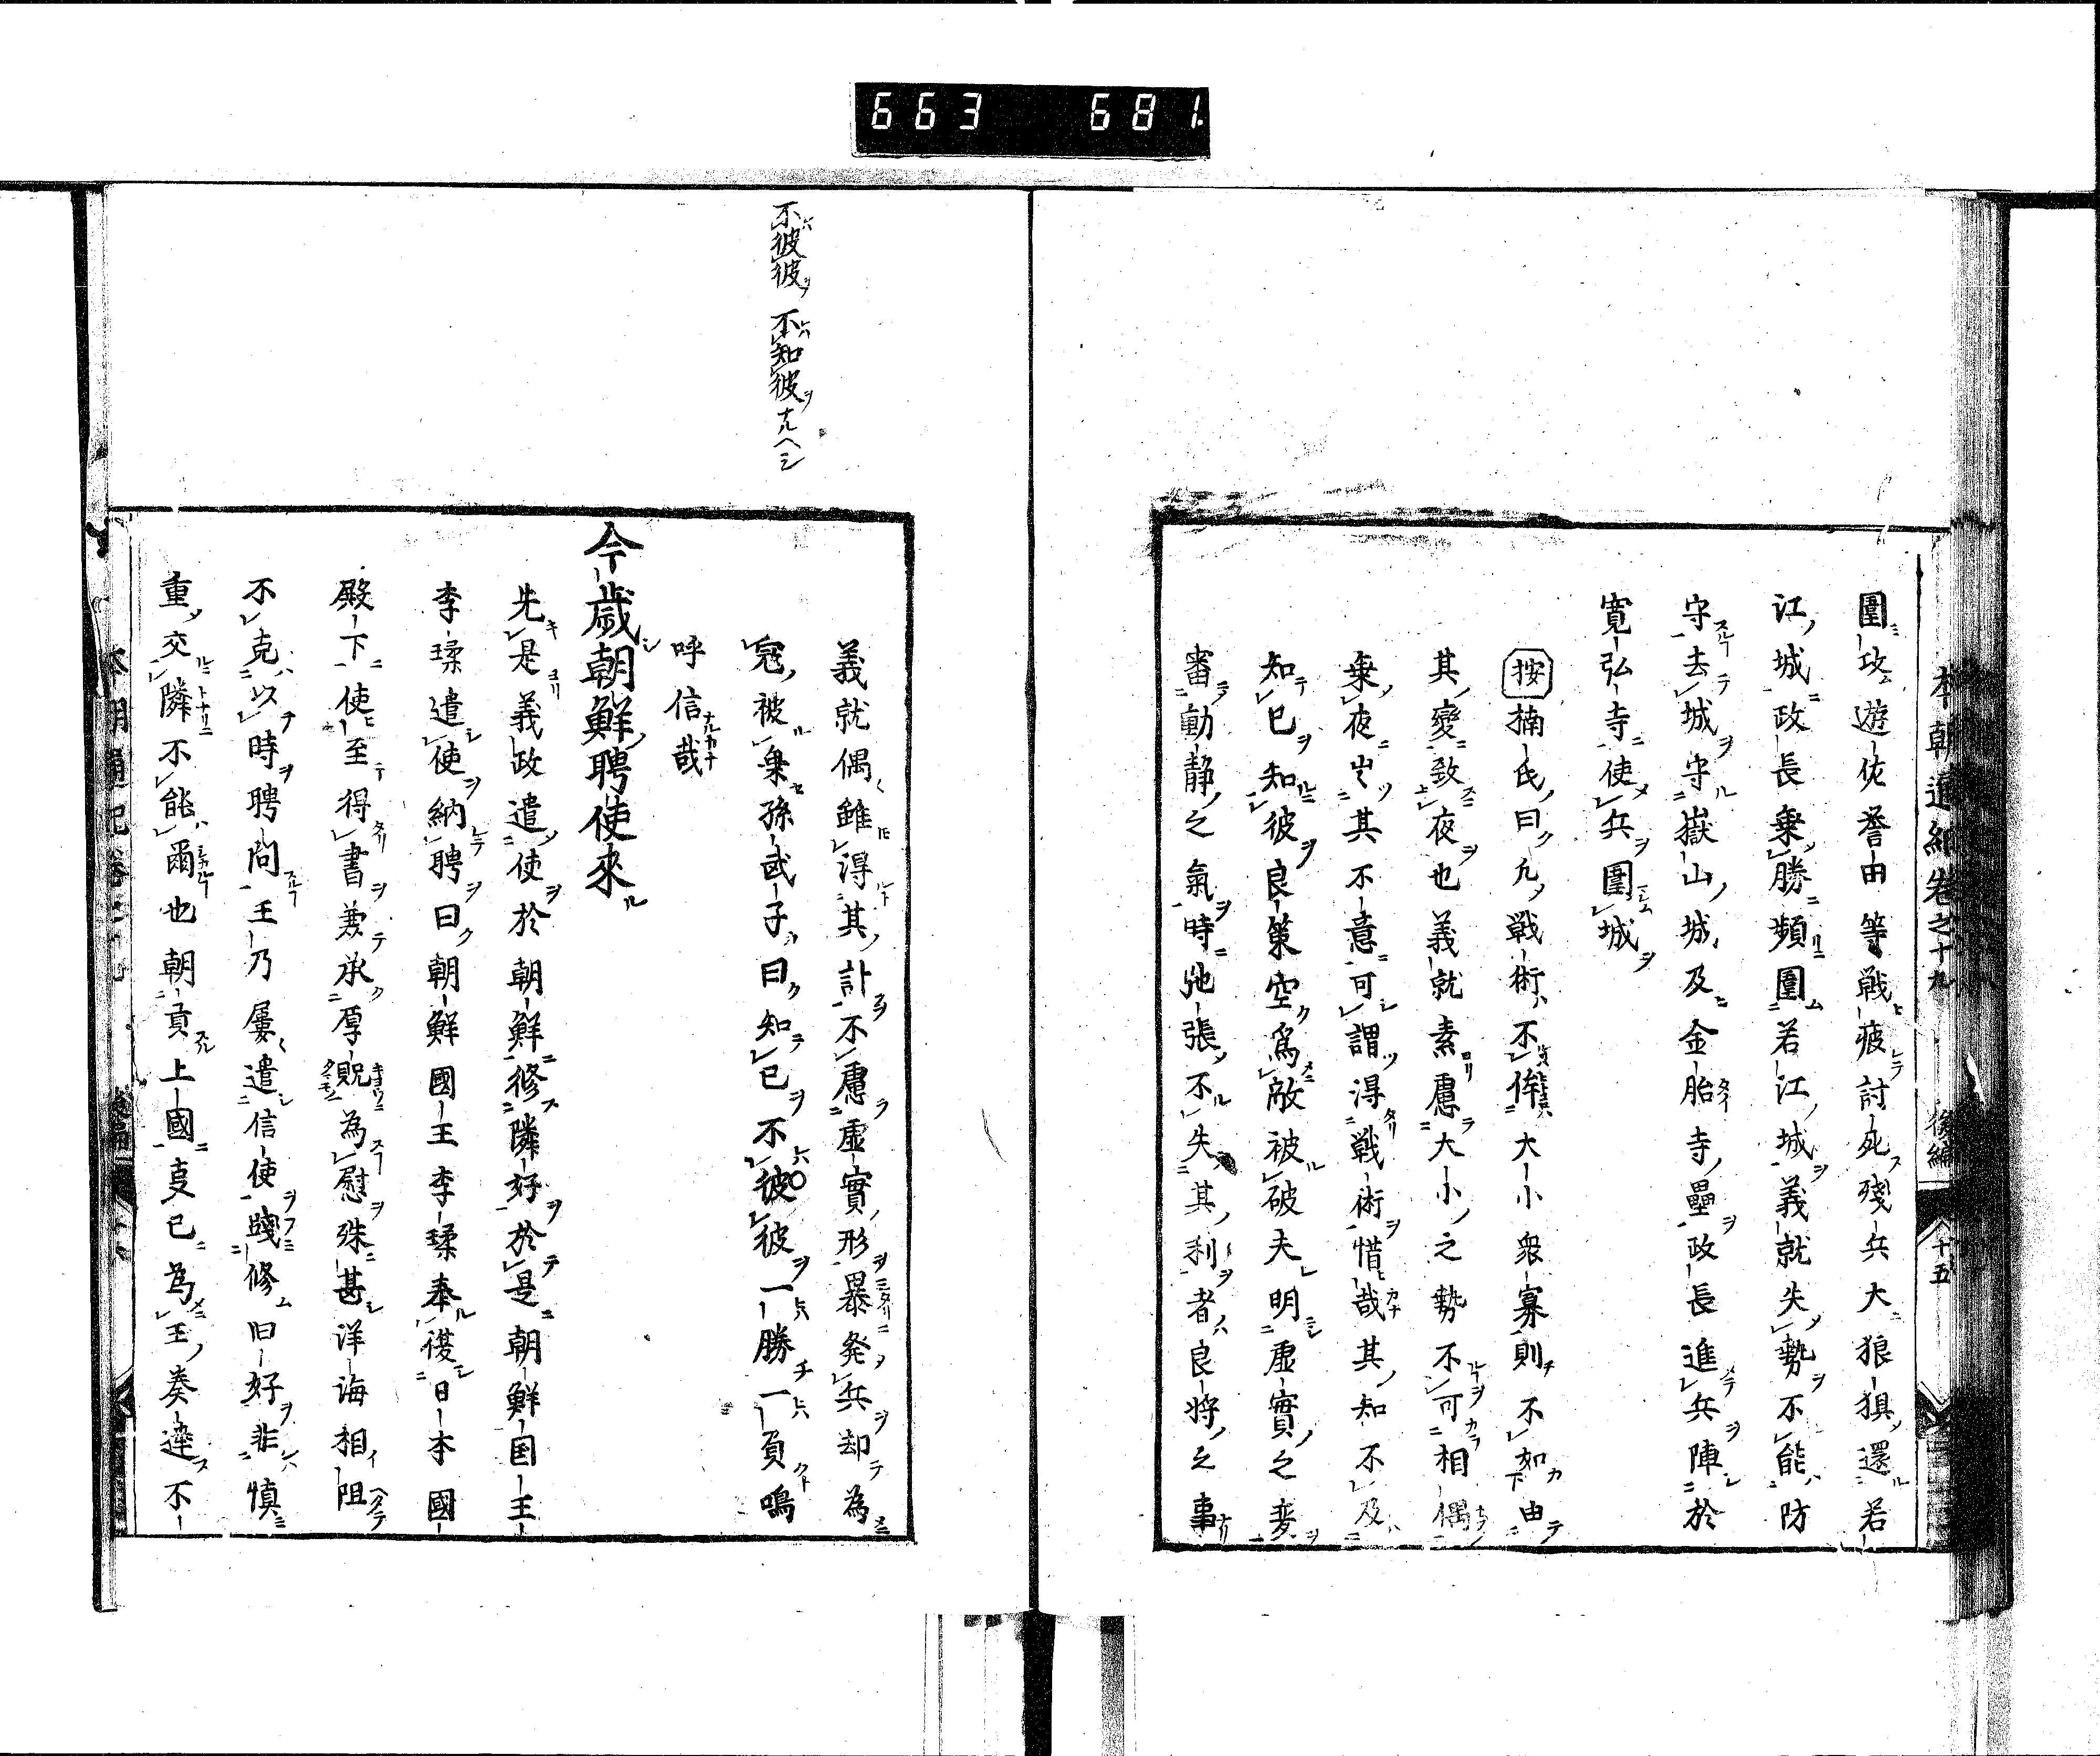 663 681
本朝通紀卷之十九 後編 十五
圍攻遊佐譽由等戰疲討死殘兵大狼狽還若
江城政長乗勝頻圍若江城義就失勢不能防
守去城守嶽山城及金胎寺壘政長進兵陣於
寛弘寺使兵圍城
按 楠氏曰凡戰術不侔大小衆寡則不如由
其變致夜也義就素慮大小之勢不可相偶
乗夜出其不意可謂得戰術惜哉其知不及
知已知彼良策空爲敵被破夫明虛實之変
審動静之氣時弛張不失其利者良将之事
不彼彼ヲ 不知彼ヲナルヘシ
義就偶雖得其計不慮虛實形暴発兵却為
寇被乗孫武子曰知已不彼彼一勝一負嗚
呼信哉
今歳朝鮮聘使來
先是義政遣使於朝鮮修隣好於是朝鮮国王
李瑈遣使納聘曰朝鮮國王李瑈奉復日本國
殿下使至得書兼承厚貺為慰殊甚洋海相阻
不克以時聘問王乃屢遣信使踐修旧好非慎
重交隣不能爾也朝貢上國㕝已為王奏達不